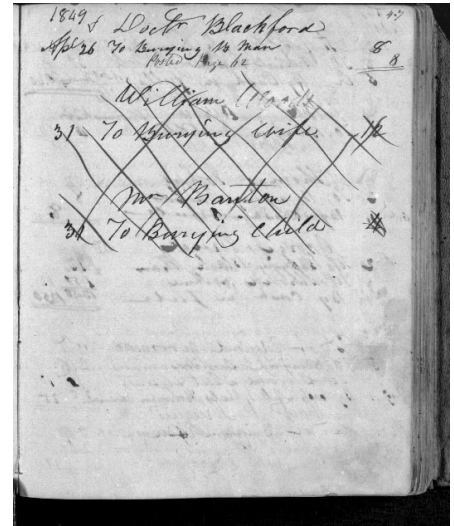 1849 Doctr Blackford 47
Apl 26 To Burying B Man 8
8
Posted Page 62
William
31 To Burying Wife
Mr Banton
31 To Burying Child